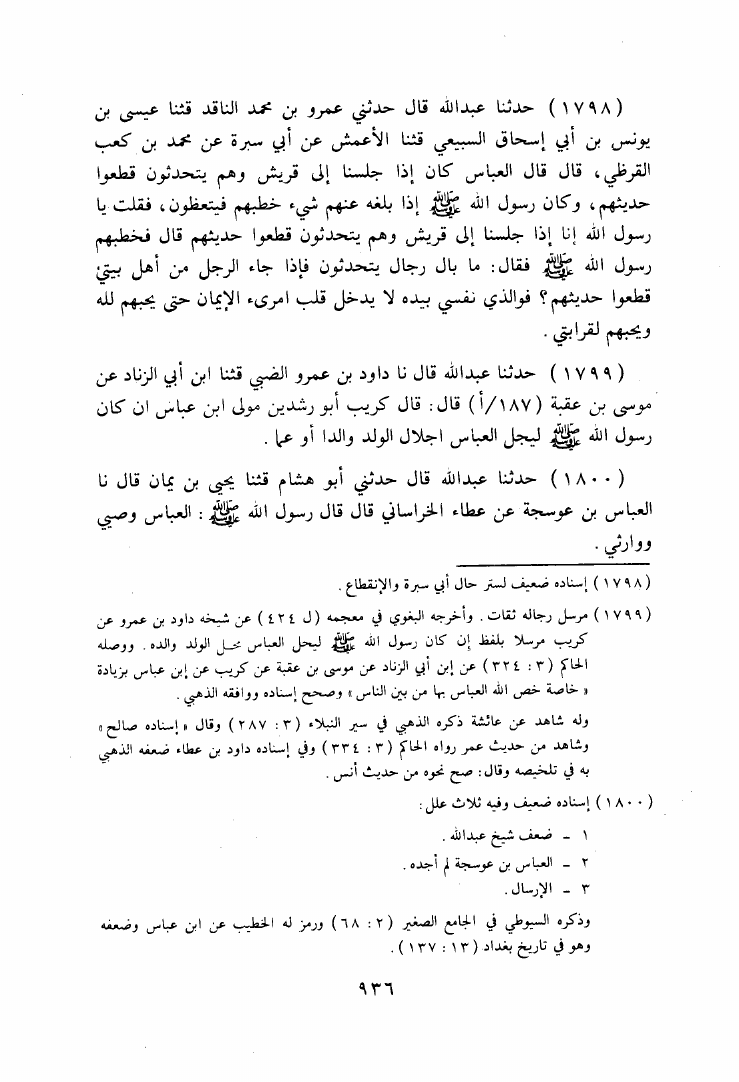 (١٧٩٨) حدثنا عبدالله قال حدثني عمرو بن محمد الناقد قثنا عيسى بن
يونس بن أبي إسحاق السبيعي قثنا الأعمش عن أبي سبرة عن محمد بن كعب
القرظي، قال قال العباس كان إذا جلسنا إلى قريش وهم يتحدثون قطعوا
حديثهم، وكان رسول الله ﷺ إذا بلغه عنهم شيء خطبهم فيتعظون، فقلت يا
رسول الله إنا إذا جلسنا إلى قريش وهم يتحدثون قطعوا حديثهم قال فخطبهم
رسول الله ﷺ فقال: ما بال رجال يتحدثون فإذا جاء الرجل من أهل بيتي
قطعوا حديثهم؟ فوالذي نفسي بيده لا يدخل قلب امرىء الإيمان حتى يحبهم لله
ويحبهم لقرابتي.
(١٧٩٩) حدثنا عبدالله قال نا داود بن عمرو الضبي قثنا ابن أبي الزناد عن
موسى بن عقبة (١٨٧/أ) قال: قال كريب أبو رشدين مولى ابن عباس ان كان
رسول الله ﷺ ليجل العباس اجلال الولد والدا أو عما.
(١٨٠٠) حدثنا عبدالله قال حدثني أبو هشام قثنا يحيى بن يمان قال نا
العباس بن عوسجة عن عطاء الخراساني قال قال رسول الله ﷺ: العباس وصيي
ووارثي.
(١٧٩٨) إسناده ضعيف لستر حال أبي سبرة والإنقطاع.
(١٧٩٩) مرسل رجاله ثقات. وأخرجه البغوي في معجمه (ل ٤٢٤) عن شيخه داود بن عمرو عن
كريب مرسلا بلفظ إن كان رسول الله ﷺ ليحل العباس محل الولد والده. ووصله
الحاكم (٣: ٣٢٤) عن إبن أبي الزناد عن موسى بن عقبة عن كريب عن إبن عباس بزيادة
«خاصة خص الله العباس بها من بين الناس» وصحح إسناده ووافقه الذهبي.
وله شاهد عن عائشة ذكره الذهبي في سير النبلاء (٣: ٢٨٧) وقال «إسناده صالح»
وشاهد من حديث عمر رواه الحاكم (٣: ٣٣٤) وفي إسناده داود بن عطاء ضعفه الذهبي
به في تلخيصه وقال: صح نحوه من حديث أنس.
(١٨٠٠) إسناده ضعيف وفيه ثلاث علل:
١ - ضعف شيخ عبدالله.
٢ - العباس بن عوسجة لم أجده.
٣ - الإرسال.
وذكره السيوطي في الجامع الصغير (٢: ٦٨) ورمز له الخطيب عن ابن عباس وضعفه
وهو في تاريخ بغداد (١٣: ١٣٧).
٩٣٦